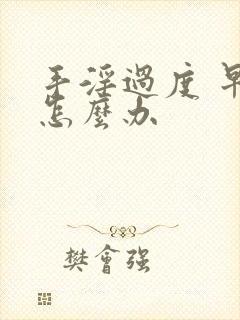 手淫過度 早
怎麽办
樊會强